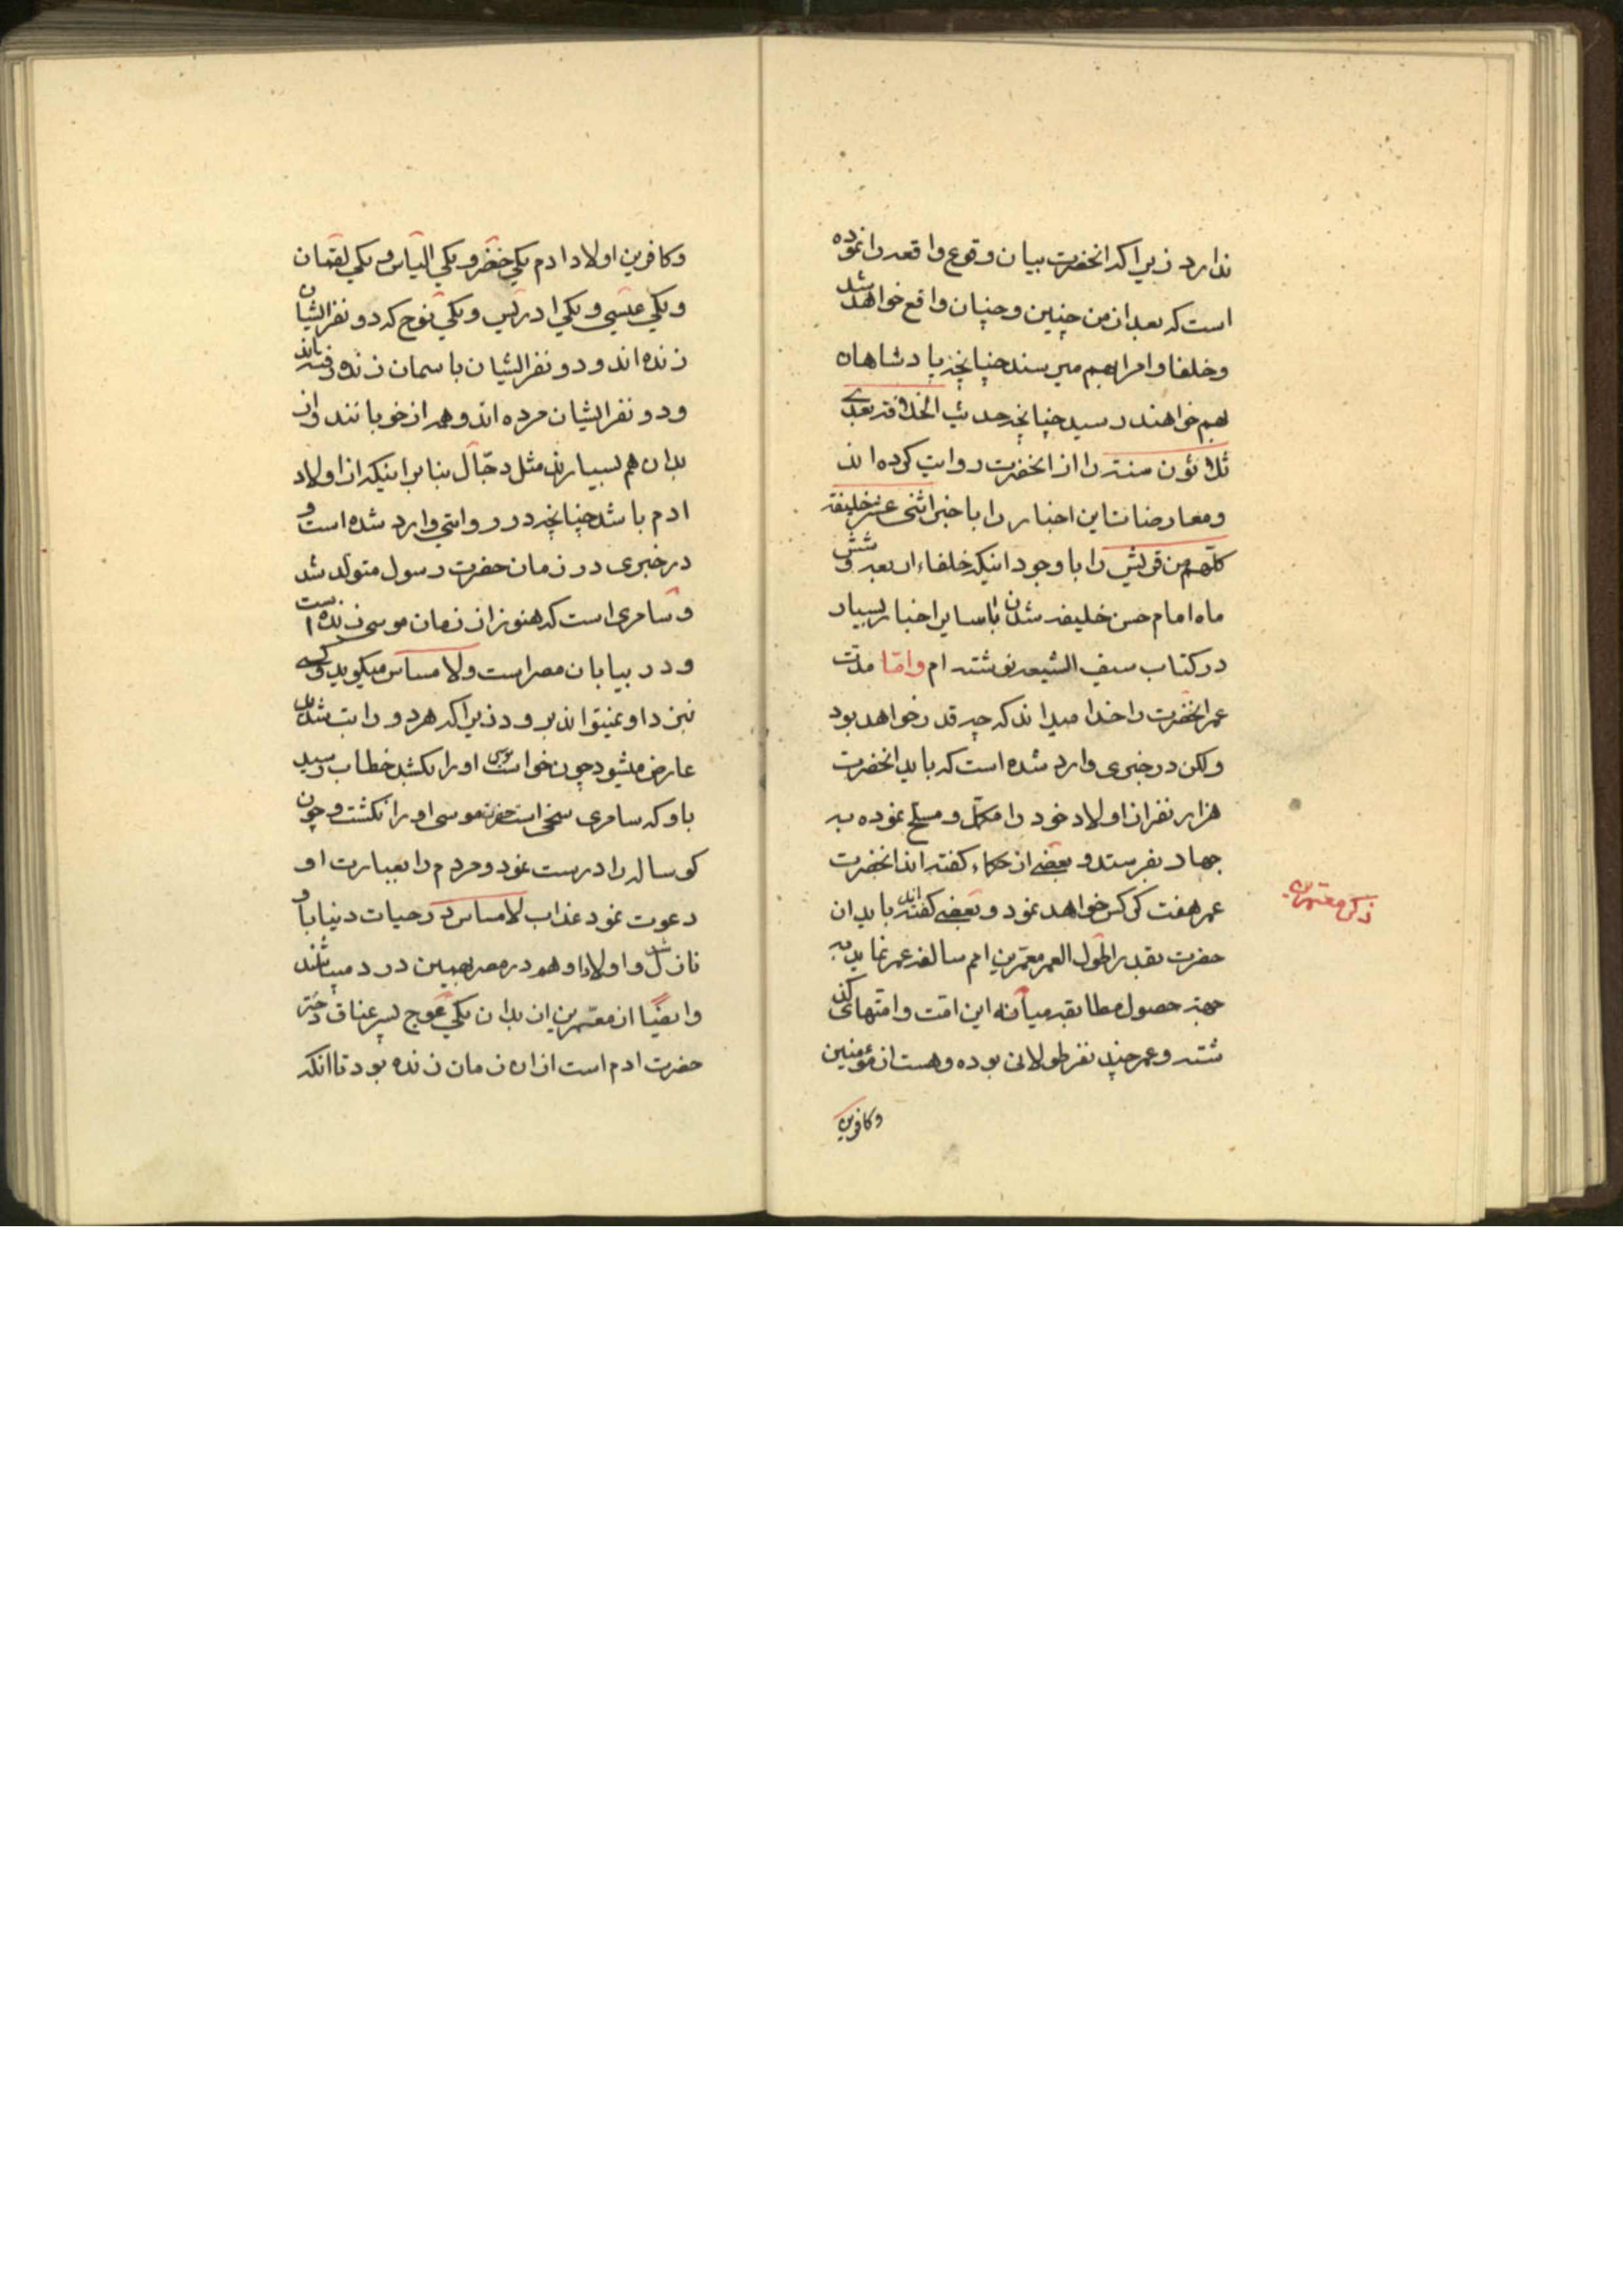 ندارد زیرا که انحضرت بیان وقوع واقعه را نموده
است که بعد از من چنین و چنان واقع خواهد شد
و خلفا و امرا بهم میرسند چنانچه پادشاهان
بهم خواهند رسید چنانچه حدیث الخلافة بعدی
ثلاثون سنته را از انحضرت روایت کرده اند
و معارضات این اخبار را با خبر اثنی عشر خلیفة
کلهم من قریش را با وجود اینکه خلفاء اربعه و شش
ماه امام حسن خلیفه شدن با سایر اخبار بسیار
در کتاب سیف الشیعه نوشته ام و امّا مدّت
عمر انحضرت را خدا میداند که چه قدر خواهد بود
ولکن در خبری وارد شده است که باید انحضرت
هزار نفر از اولاد خود را مکمّل و مسلح نموده به
جهاد بفرستد و بعضے از حکماء کفته اند انحضرت
عمر هفت کرکس خواهد نمود و بعضے کفته اند باید ان
حضرت بقدر اطول العمر معمّرین امم سالفه عمر نماید به
جهة حصول مطابقه میانه این امّت و امّتهای کذ
شته و عمر چند نفر طولانی بوده و هست از مؤمنین
وکافرین
ذکر معمّرین
وکافرین اولاد ادم یکی خضر و یکی الیاس و یکی لقمان
و یکی عیسی و یکی ادریس و یکی نوح که دو نفر ایشان
زنده اند و دو نفر ایشان باسمان زنده رفته اند
و دو نفر ایشان مرده اند و همه از خوبانند و از
بدان هم بسیارند مثل دجّال بنابر اینکه از اولاد
ادم باشد چنانچه در روایتی وارد شده است و
در خبری در زمان حضرت رسول متولّد شد
و سامری است که هنوز از زمان موسی زنده است
و در بیابان مصر است و لا مساس میکوید و کسے
نزد او نمیتواند برود زیرا که هر دو را تب شدید
عارض میشود چون خواست موسی او را بکشد خطاب رسید
باو که سامری سخی است حضرت موسی او را نکشت و چون
کوساله را درست نمود و مردم را بعبارت او
دعوت نمود عذاب لا مساس در حیات دنیا باو
نازل شد و اولاد او هم در مصر بهمین درد میباشند
و ایضًا از معمّرین از بدان یکی عوج پسر عناق دختر
حضرت ادم است از ان زمان زنده بود تا انکه